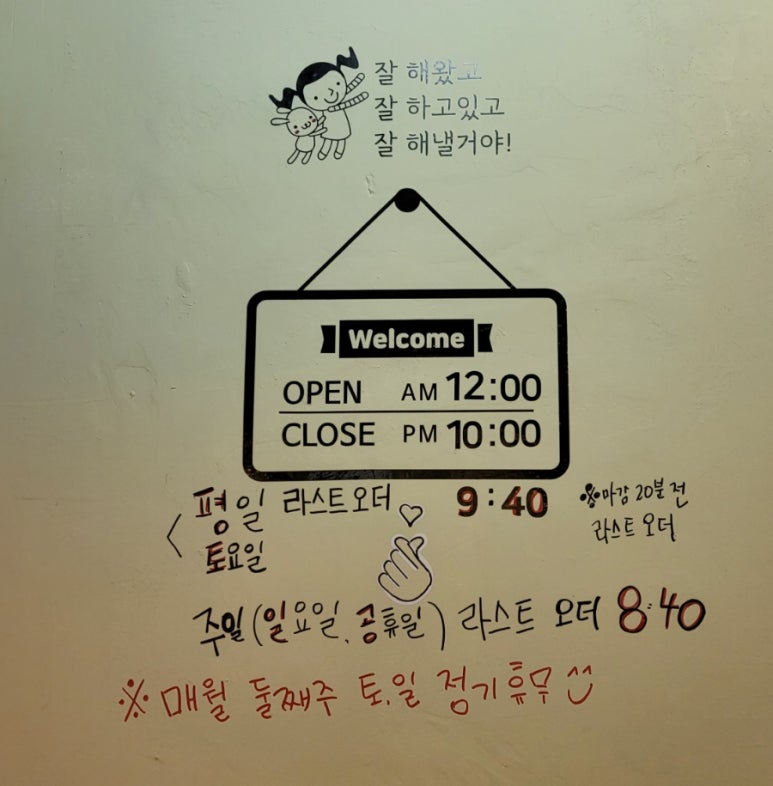 잘 해왔고
잘 하고있고
잘 해낼거야!
Welcome
OPEN AM 12:00
CLOSE PM 10:00
평일 라스트오더 9:40
토요일
※마감 20분 전
라스트 오더
주일(일요일, 공휴일) 라스트 오더 8:40
※ 매월 둘째주 토,일 정기휴무 ^^